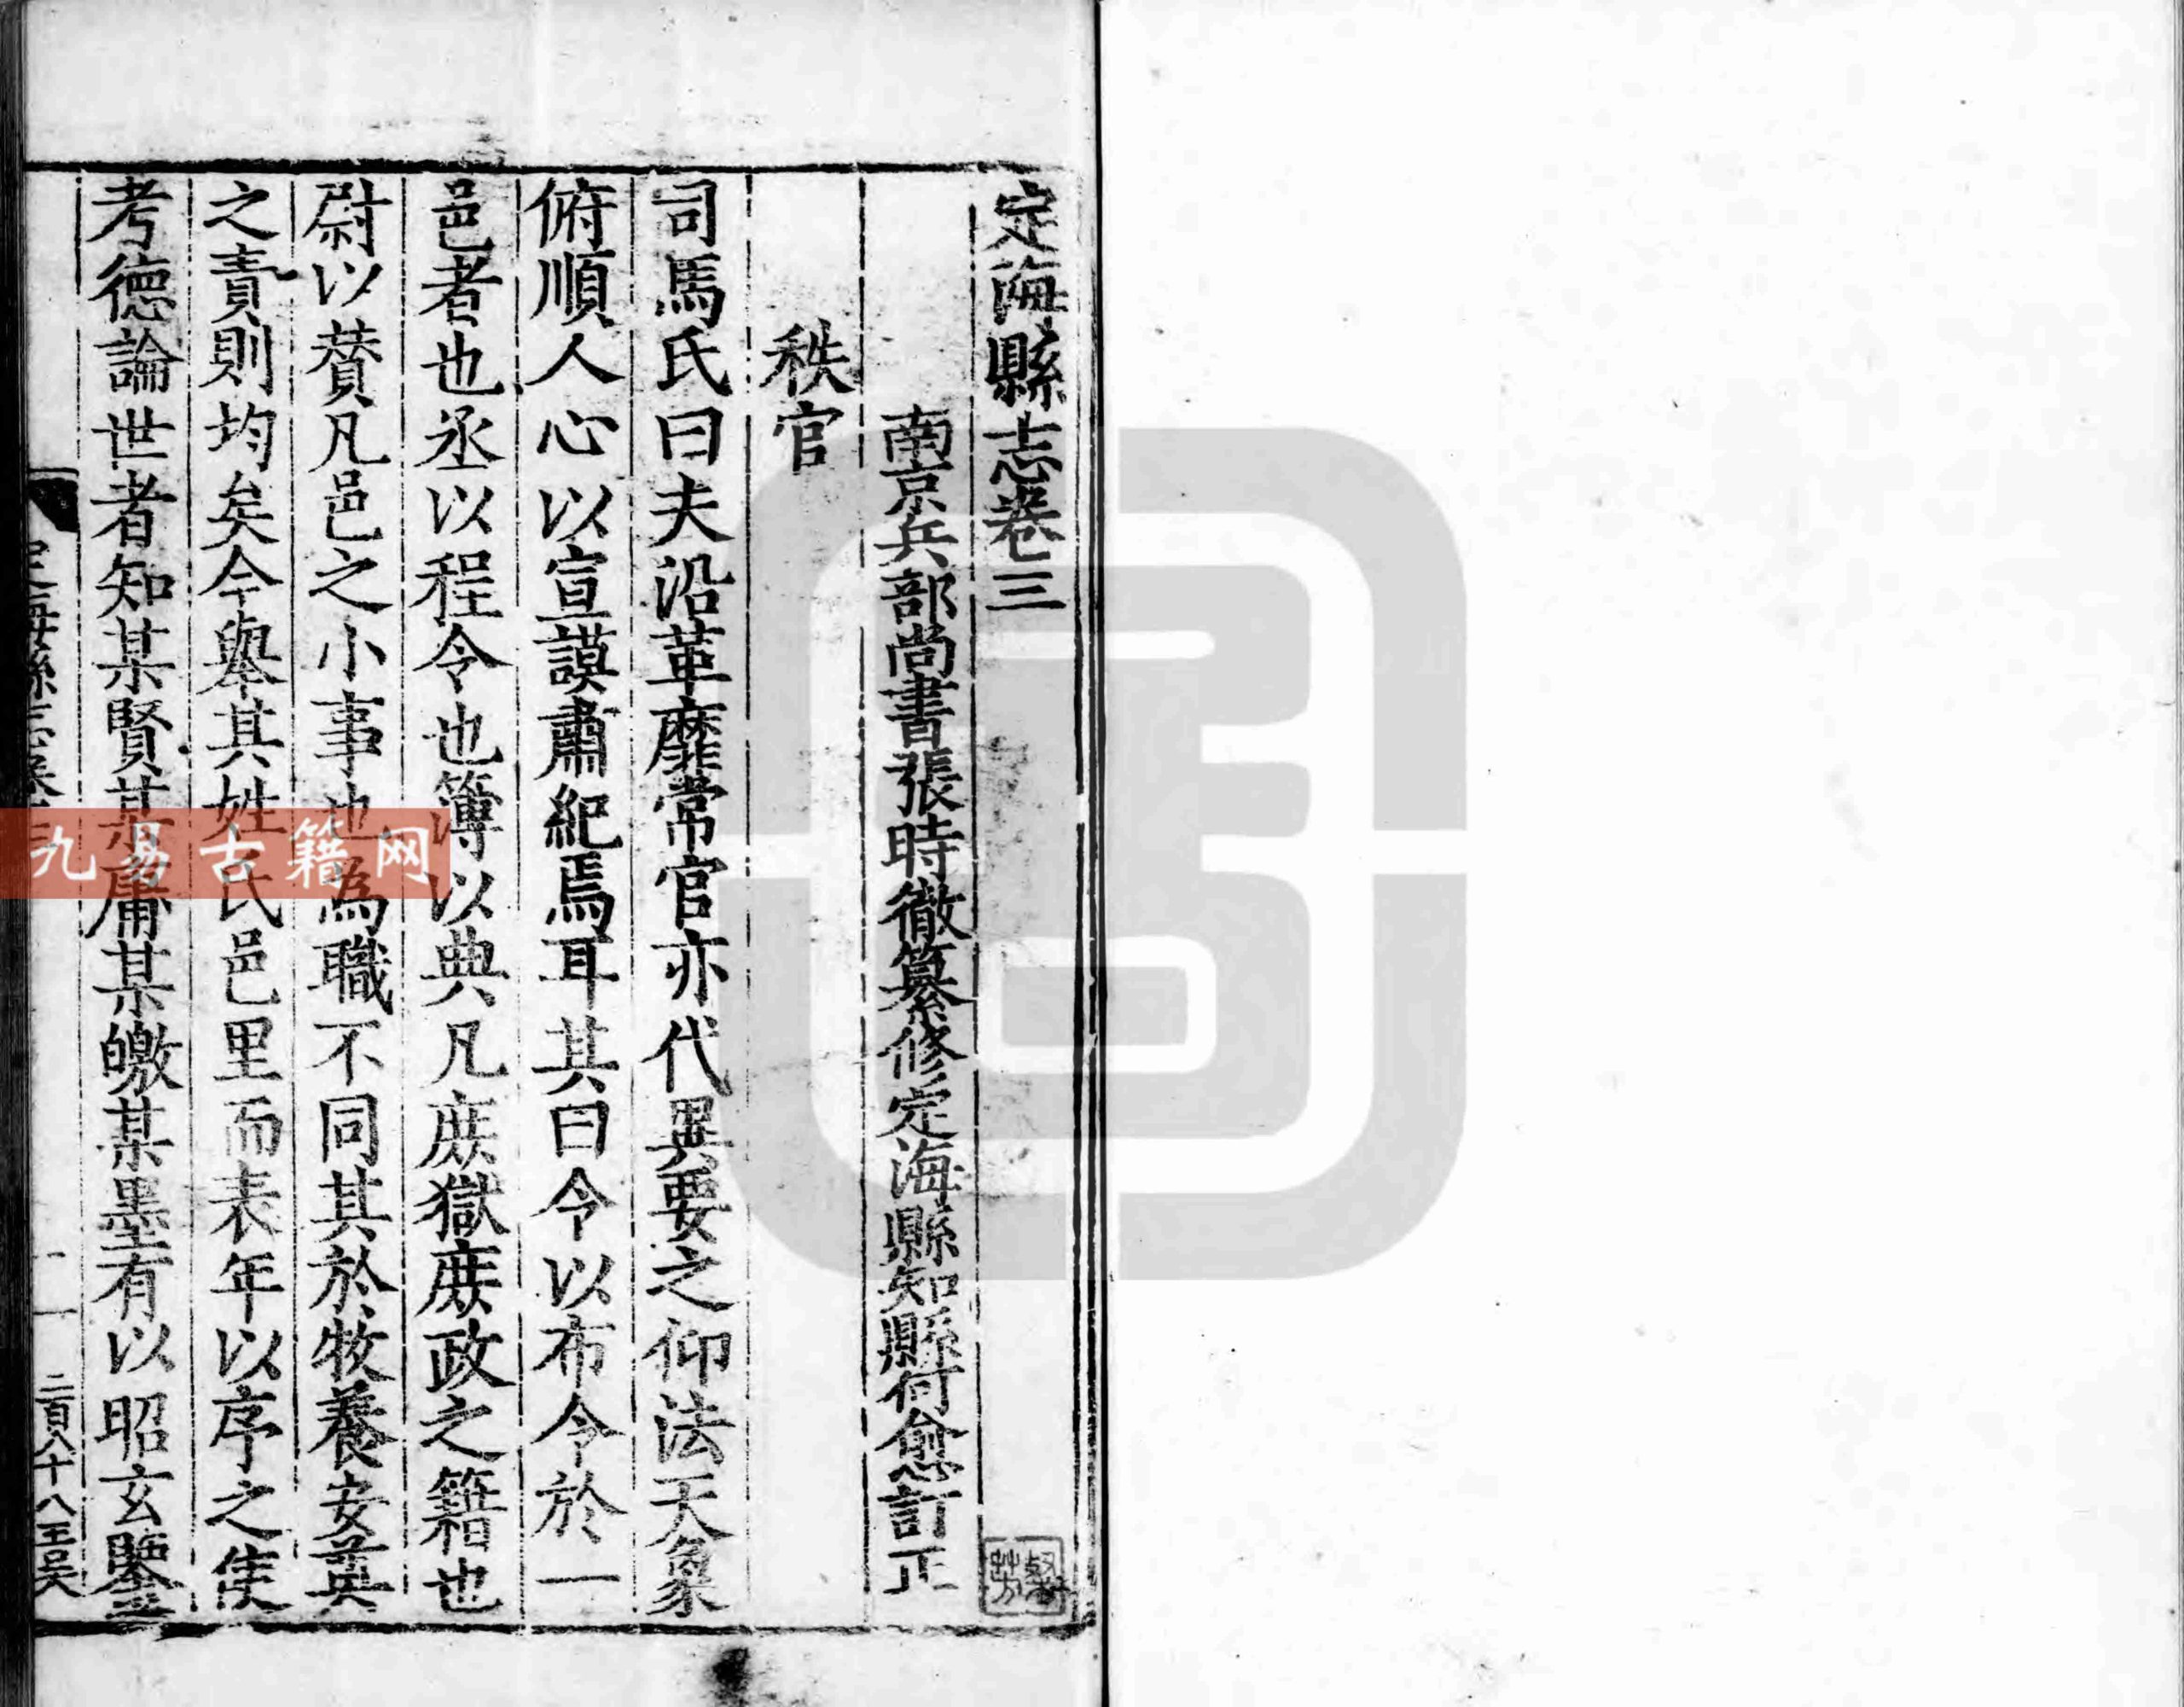 定海縣志卷三
南京兵部尚書張時徹纂修定海縣知縣何愈訂正
秩官
司馬氏曰夫沿革靡常官亦代異要之仰法天象
俯順人心以宣謨肅紀焉耳其曰令以布令於一
邑者也丞以程令也簿以典凡庶獄庶政之籍也
尉以賛凡邑之小事也為職不同其於牧養安集
之責則均矣今舉其姓氏邑里而表年以序之使
考德論世者知某賢某庸某皦某墨有以昭玄鑒
定海縣志卷三
一
二百八十八王吳
九易古籍网